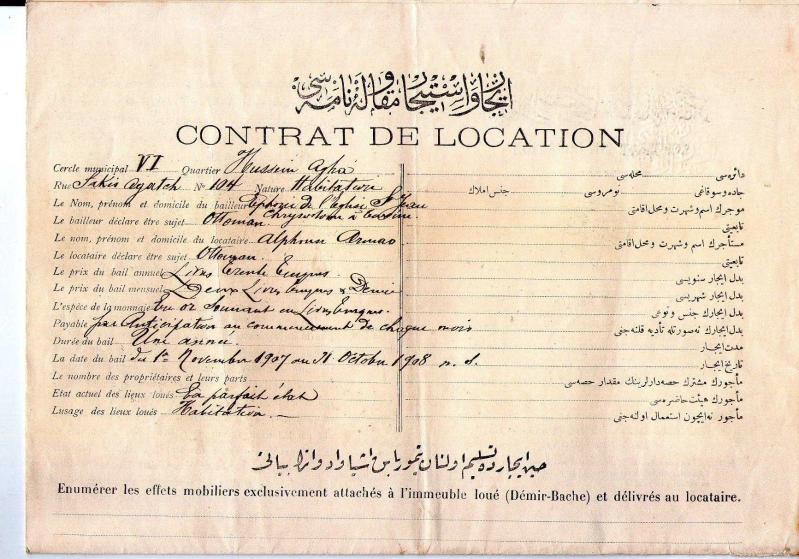 ایجار و استیجار مقاوله‌نامه‌سی
CONTRAT DE LOCATION
Cercle municipal VI Quartier Hussein Agha
Rue Sakis agatch Nº 104 Nature Habitation
Le Nom, prénom et domicile du bailleur Ephorie de l'Eglise St Jean
Chrysostome à
Le bailleur déclare être sujet Ottoman
Le nom, prénom et domicile du locataire Alphonse
Le locataire déclare être sujet Ottoman.
Le prix du bail annuel Livres trente Turques
Le prix du bail mensuel Deux Livres turques & Demie
L'espèce de la monnaie En or Sonnant en Livres turques.
Payable par Anticipation au commencement de chaque mois
Durée du bail Une année
La date du bail du 1er Novembre 1907 au 31 Octobre 1908 n. s.
Le nombre des propriétaires et leurs parts
Etat actuel des lieux loués En parfait état
Lusage des lieux loués Habitation
دائره‌سی محله‌سی
جاده و سوقاغی نومروسی جنس املاك
موجرك اسم و شهرت و محل اقامتی
تابعیتی
مستأجرك اسم و شهرت و محل اقامتی
تابعیتی
بدل ایجار سنویسی
بدل ایجار شهریسی
بدل ایجارك جنس و نوعی
بدل ایجارك نه‌صورتله تأدیه قلنه‌جغی
مدت ایجار
تاریخ ایجار
مأجورك مشترك حصه‌دارلرینك مقدار حصه‌سی
مأجورك هیئت حاضره‌سی
مأجور نه ایچون استعمال اولنه‌جغی
حین ایجارده تسلیم اولنان تیمورباش اشیا و ادواتك بیانی
Enumérer les effets mobiliers exclusivement attachés à l'immeuble loué (Démir-Bache) et délivrés au locataire.